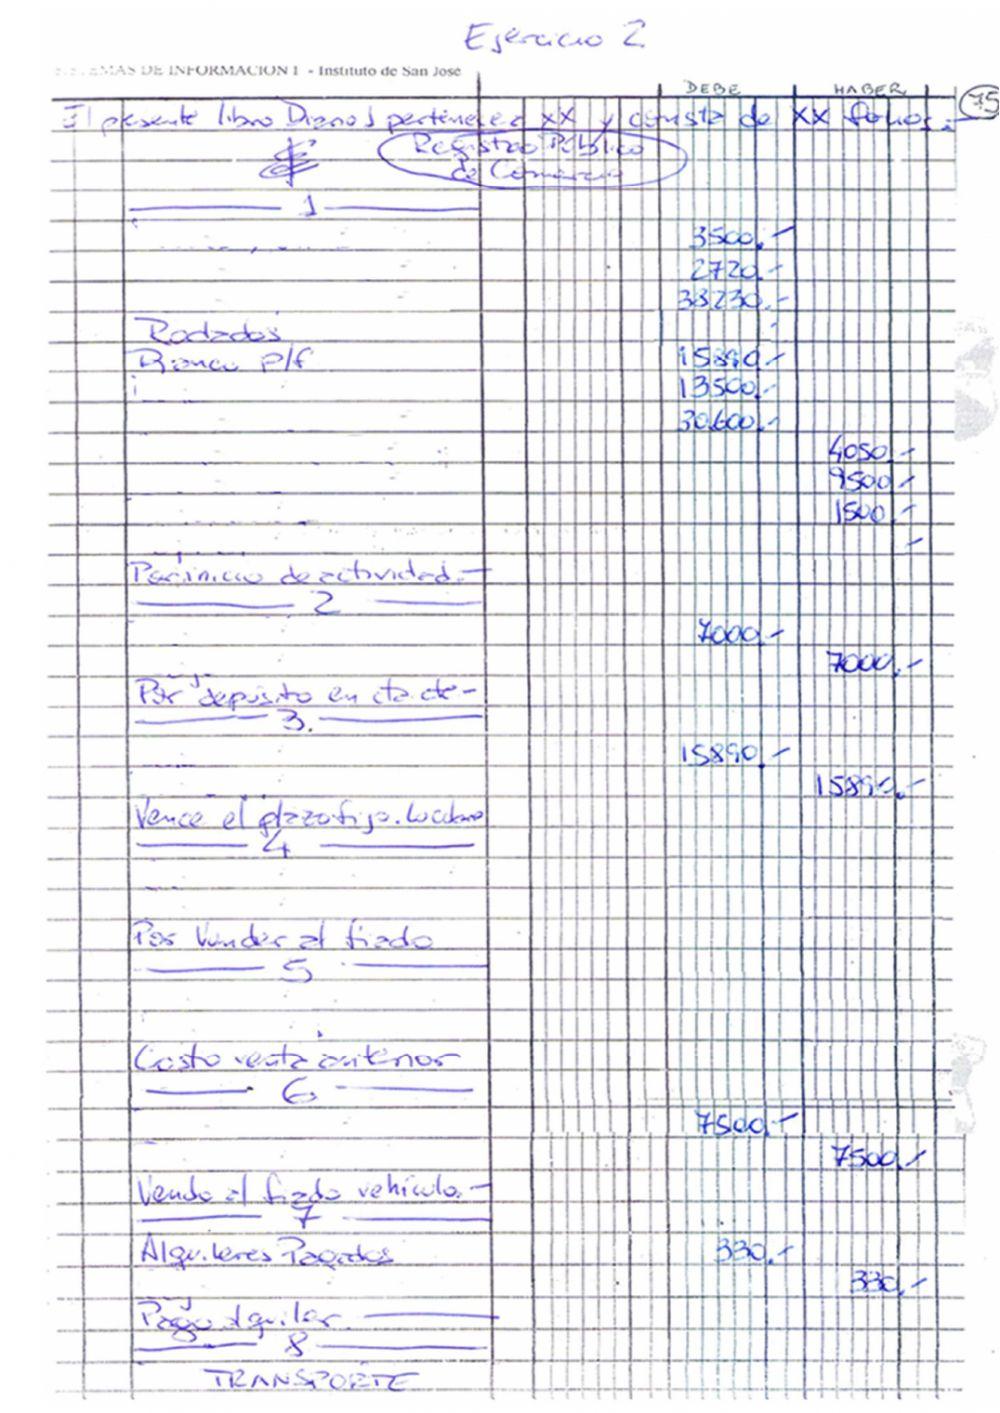 Ejercicio 2
SISTEMAS DE INFORMACION I - Instituto de San José
DEBE HABER
75
El presente libro Diario 1 pertenece a XX y consta de XX folios.
Registro Público
de Comercio
1
3500.-
2720.-
38230.-
Rodados
Banco p/f 15890.-
13500.-
30.600.-
4050.-
9500.-
1500.-
Por inicio de actividad.-
2
7000.-
7000.-
Por depósito en cta cte-
3.
15890.-
15890.-
Vence el plazo fijo. Lo cobro
4
Por Vender al fiado
5
Costo venta anterior
6
7500.-
7500.-
Vendo al fiado vehículo.-
7
Alquileres Pagados 330.-
330.-
Pago alquiler.
8
TRANSPORTE